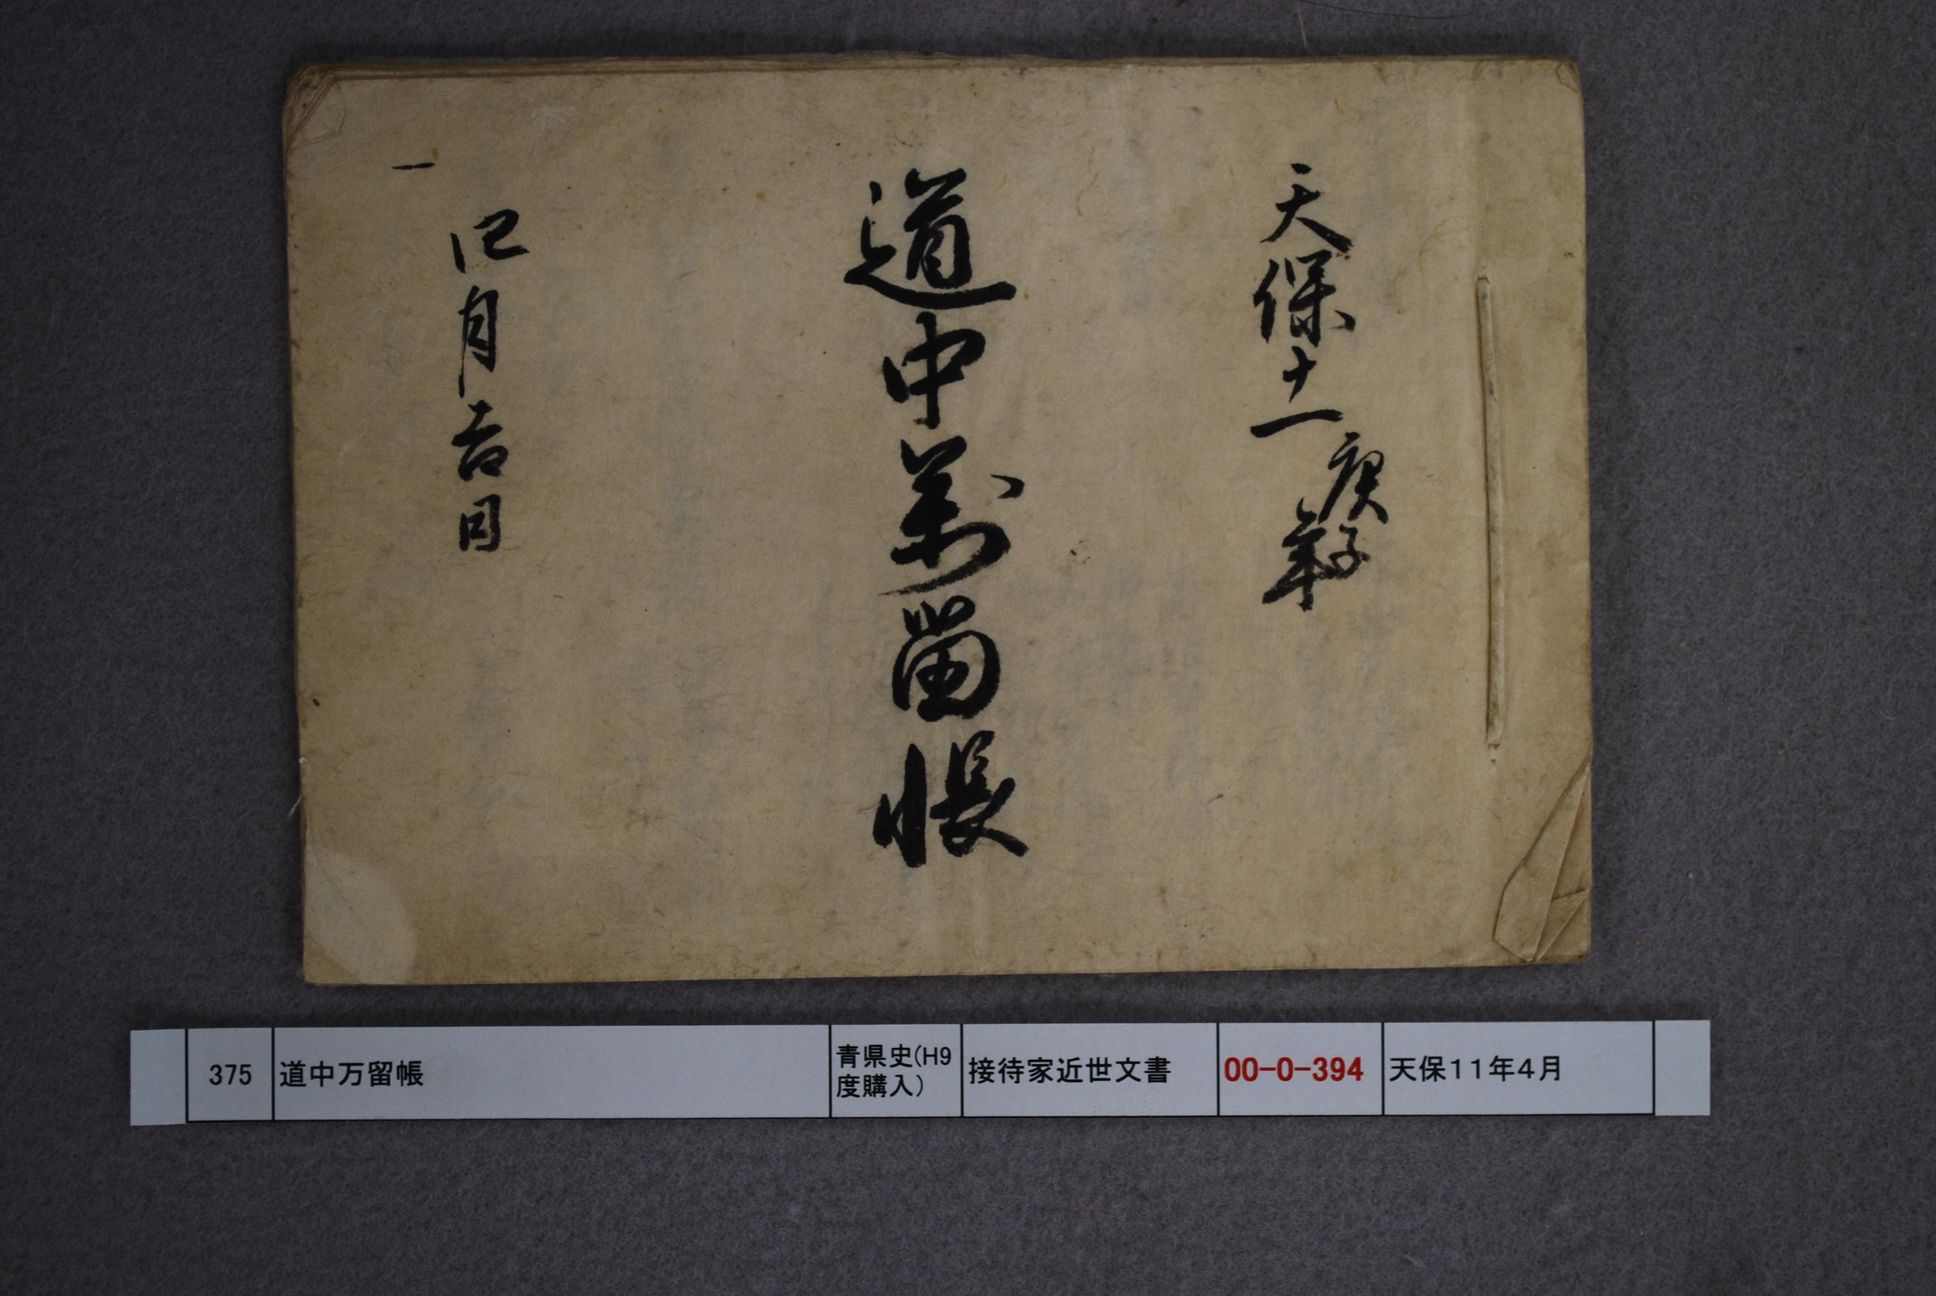 天保十一庚子年
道中萬留帳
四月吉日
一
375
道中万留帳
青県史(H9
度購入)
接待家近世文書
00-0-394
天保11年4月